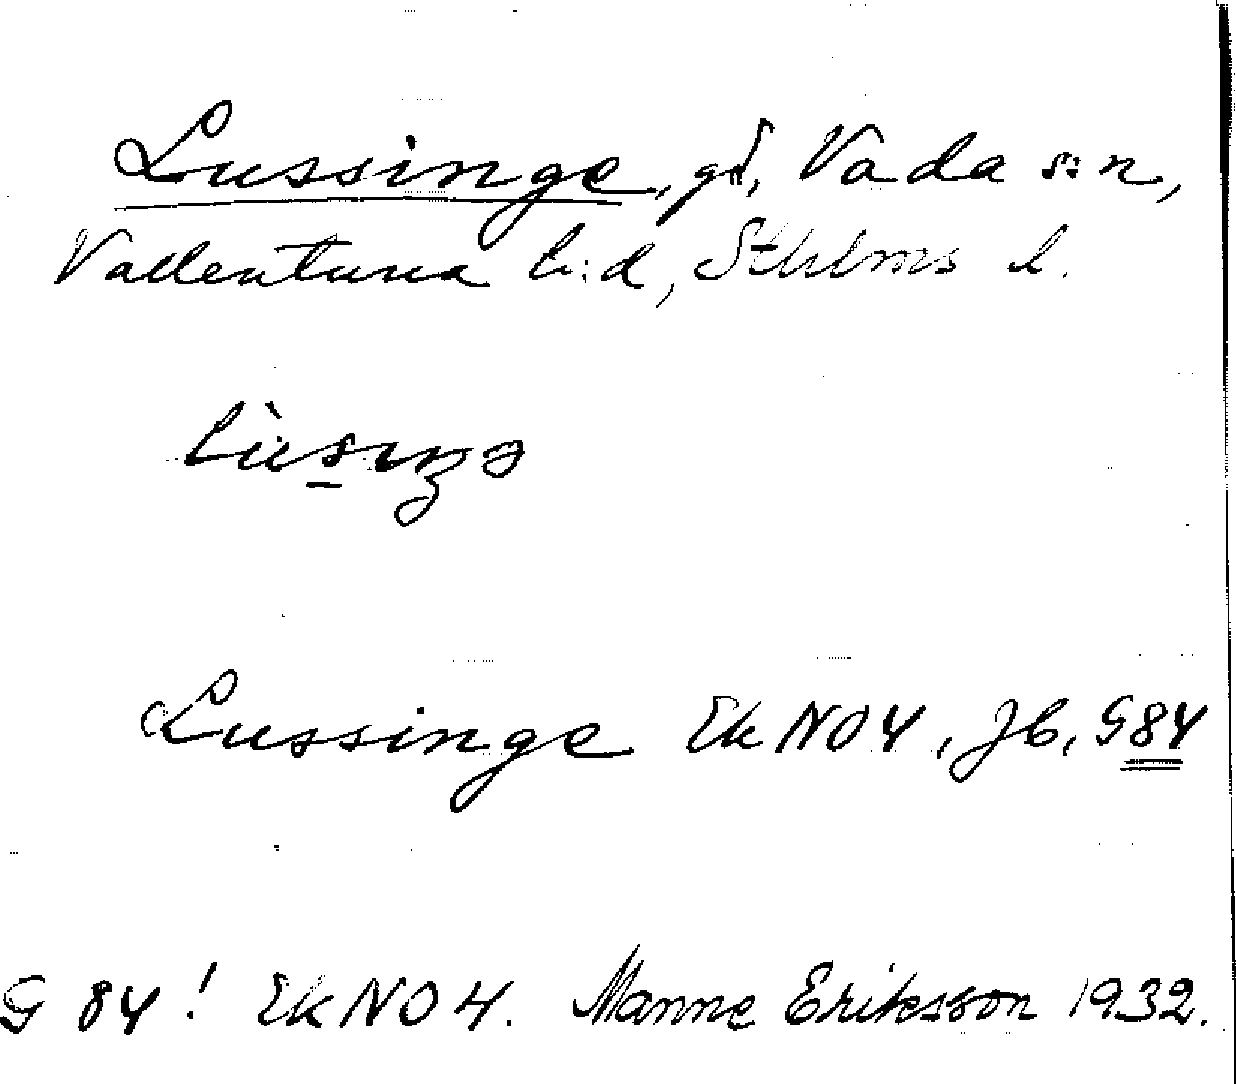 Lussinge, gd, Vada s:n,
Vallentuna h:d, Sthlms l.
Lussinge Ek NO 4, Jb, G 84
G 84! Ek NO 4. Manne Eriksson 1932.